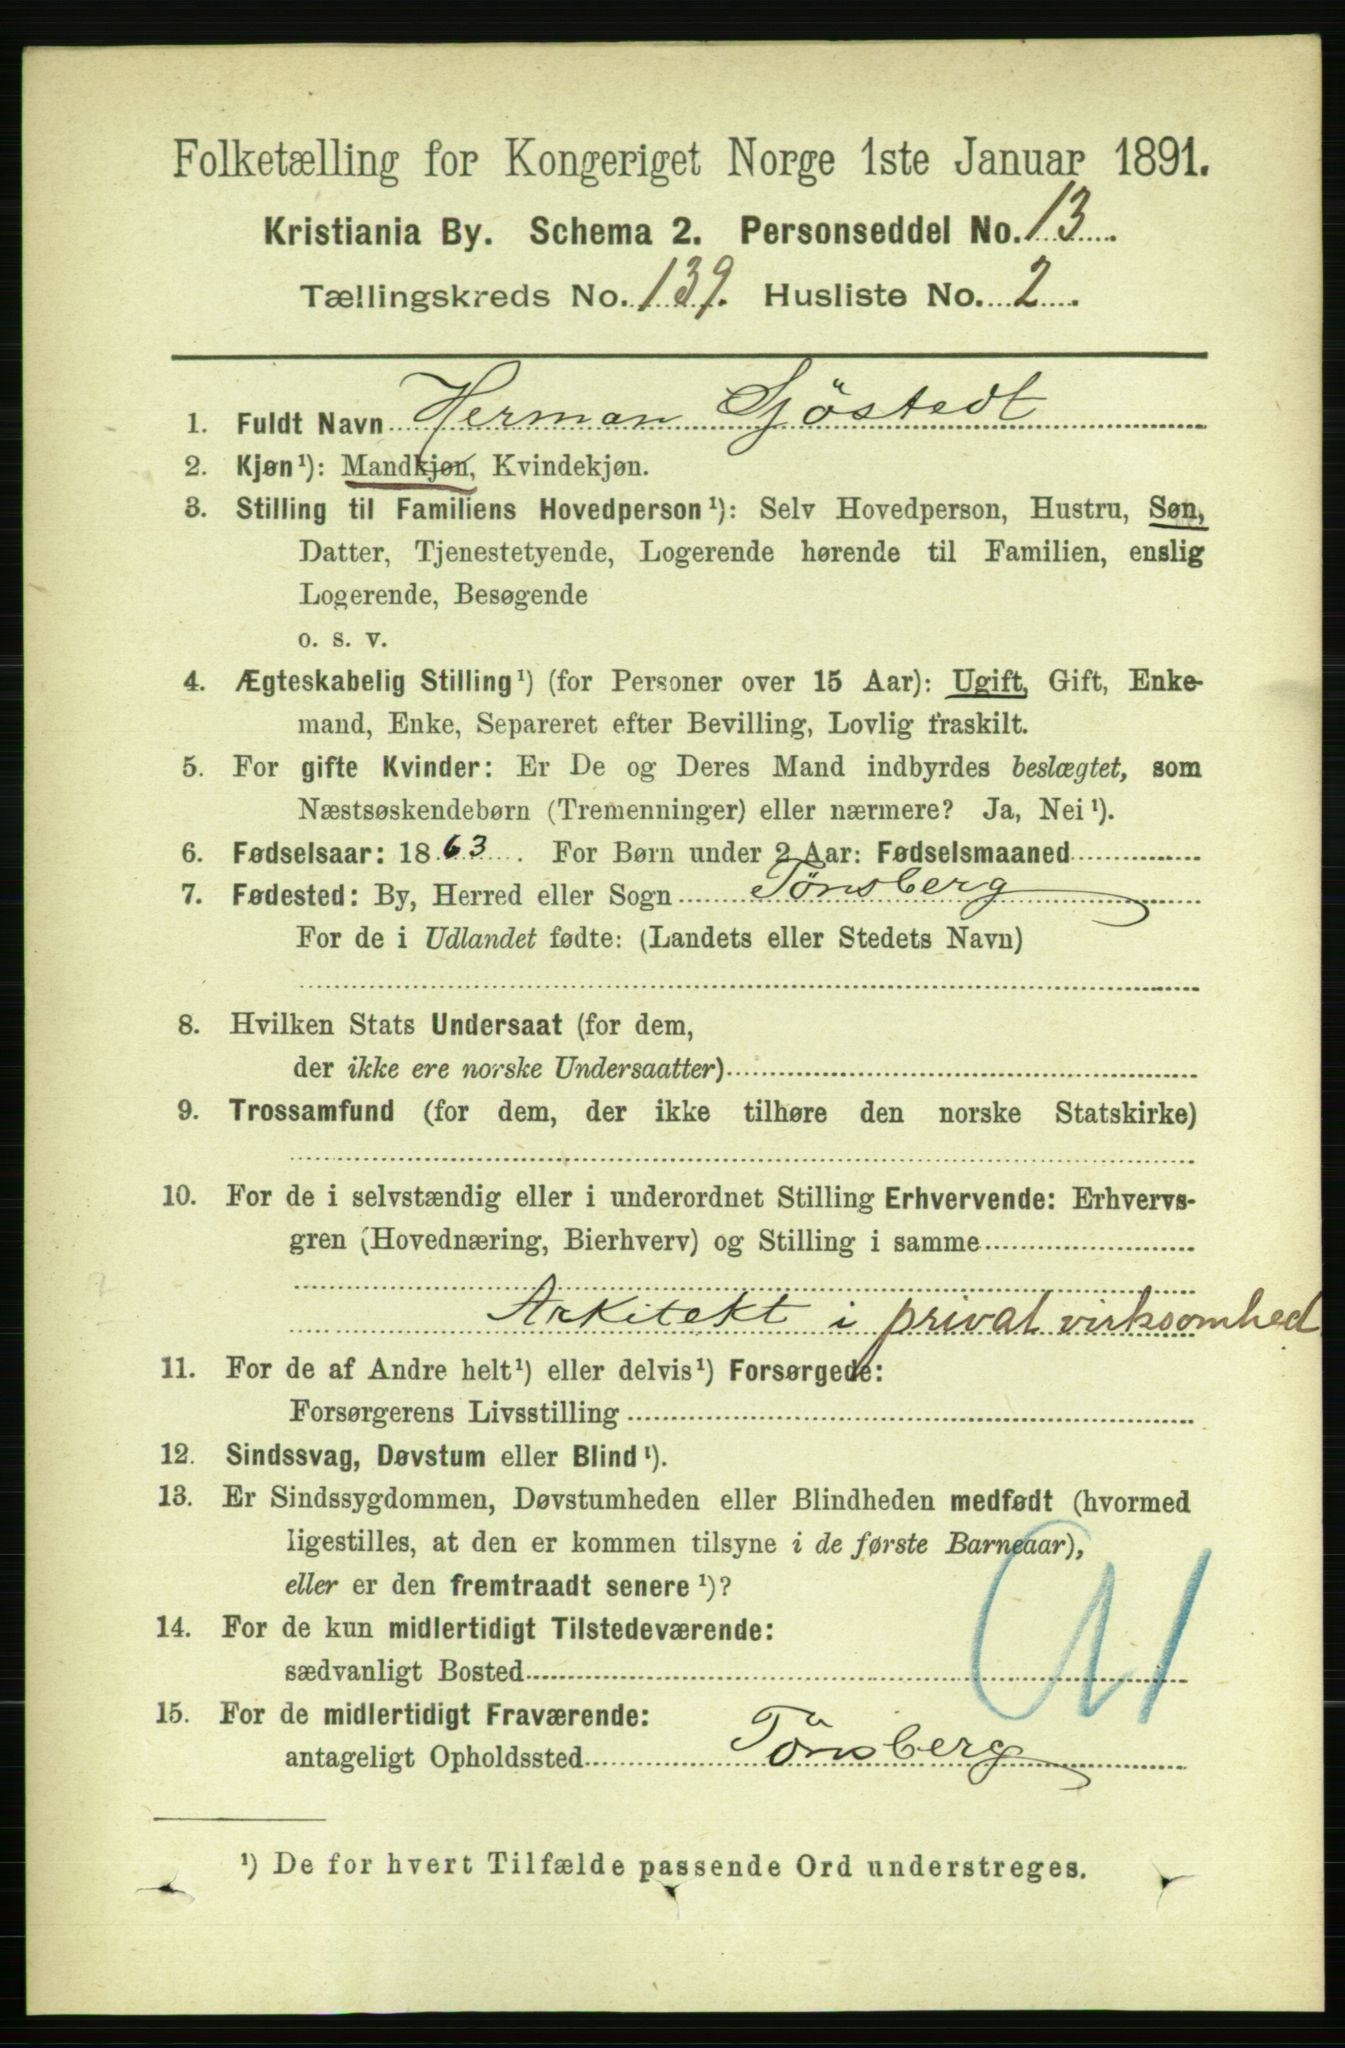 Folketælling for Kongeriget Norge 1ste Januar 1891.
Kristiania By. Schema 2. Personseddel No. 13
Tællingskreds No. 139. Husliste No. 2
1. Fuldt Navn Herman Sjöstedt
2. Kjøn¹): Mandkjøn, Kvindekjøn.
3. Stilling til Familiens Hovedperson¹): Selv Hovedperson, Hustru, Søn,
Datter, Tjenestetyende, Logerende hørende til Familien, enslig
Logerende, Besøgende
o. s. v.
4. Ægteskabelig Stilling¹) (for Personer over 15 Aar): Ugift, Gift, Enke-
mand, Enke, Separeret efter Bevilling, Lovlig fraskilt.
5. For gifte Kvinder: Er De og Deres Mand indbyrdes beslægtet, som
Næstsøskendebørn (Tremenninger) eller nærmere? Ja, Nei¹).
6. Fødselsaar: 1863. For Børn under 2 Aar: Fødselsmaaned
7. Fødested: By, Herred eller Sogn Tönsberg
For de i Udlandet fødte: (Landets eller Stedets Navn)
8. Hvilken Stats Undersaat (for dem,
der ikke ere norske Undersaatter)
9. Trossamfund (for dem, der ikke tilhøre den norske Statskirke)
10. For de i selvstændig eller i underordnet Stilling Erhvervende: Erhvervs-
gren (Hovednæring, Bierhverv) og Stilling i samme
Arkitekt i privat virksomhed
11. For de af Andre helt¹) eller delvis¹) Forsørgede:
Forsørgerens Livsstilling
12. Sindssvag, Døvstum eller Blind¹).
13. Er Sindssygdommen, Døvstumheden eller Blindheden medfødt (hvormed
ligestilles, at den er kommen tilsyne i de første Barneaar),
eller er den fremtraadt senere¹)?
14. For de kun midlertidigt Tilstedeværende:
sædvanligt Bosted
15. For de midlertidigt Fraværende:
antageligt Opholdssted Tönsberg
¹) De for hvert Tilfælde passende Ord understreges.